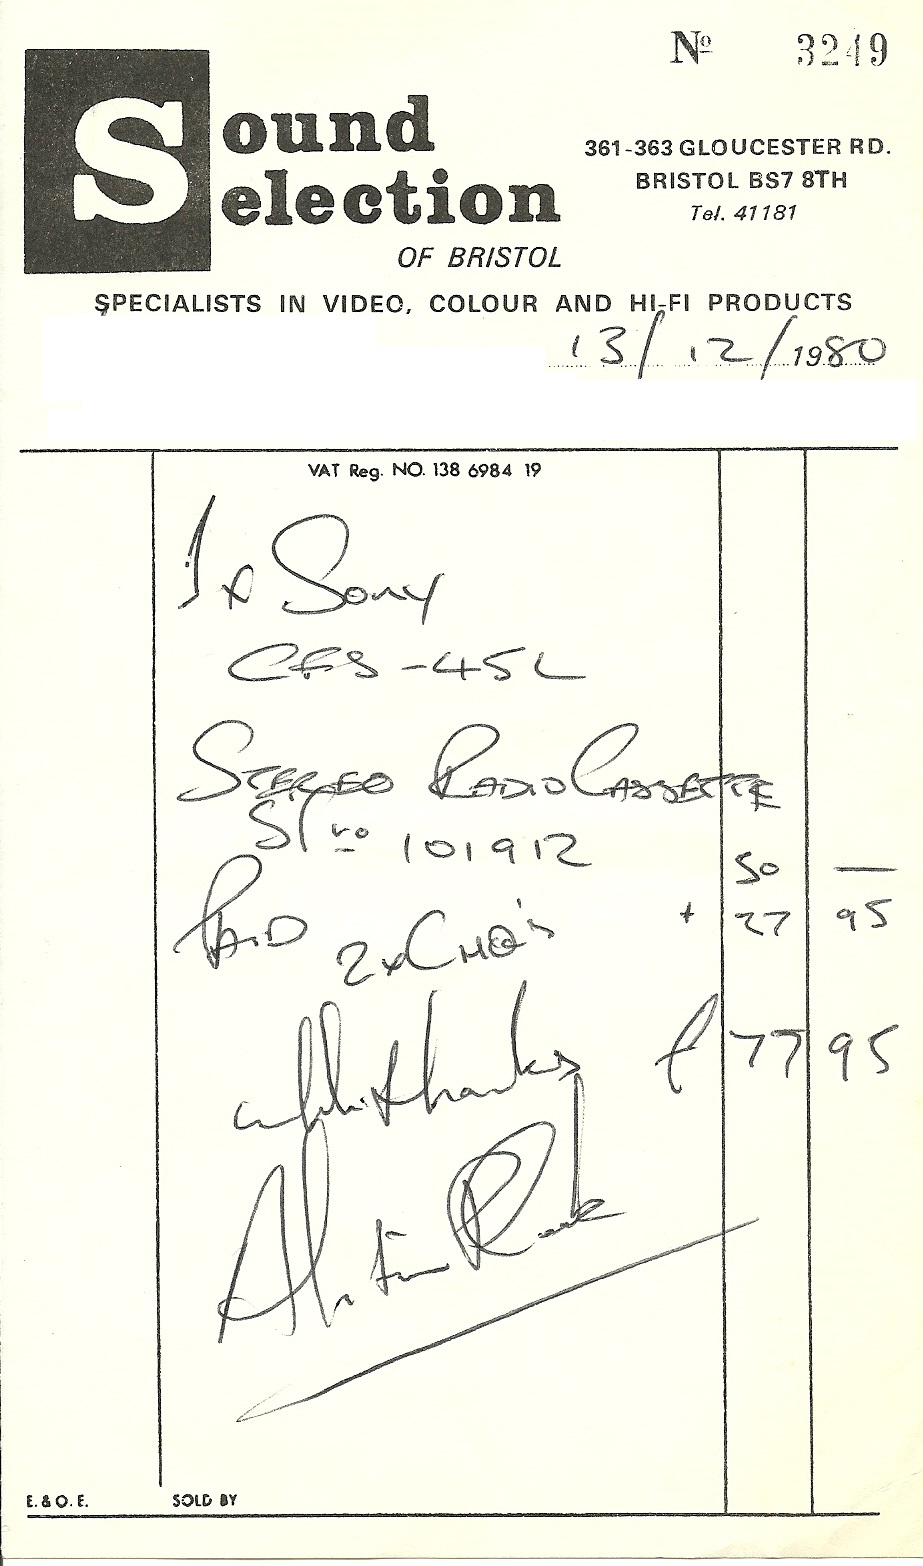 Nº 3249
Sound
Selection
OF BRISTOL
361-363 GLOUCESTER RD.
BRISTOL BS7 8TH
Tel. 41181
SPECIALISTS IN VIDEO, COLOUR AND HI-FI PRODUCTS
13/12/1980
VAT Reg. NO. 138 6984 19
1 x Sony
CFS-45L
STEREO RADIO CASSETTE
S/No 101912
50 —
PAID 2xCHQ's + 27 95
with thanks £ 77 95
E. & O. E.
SOLD BY